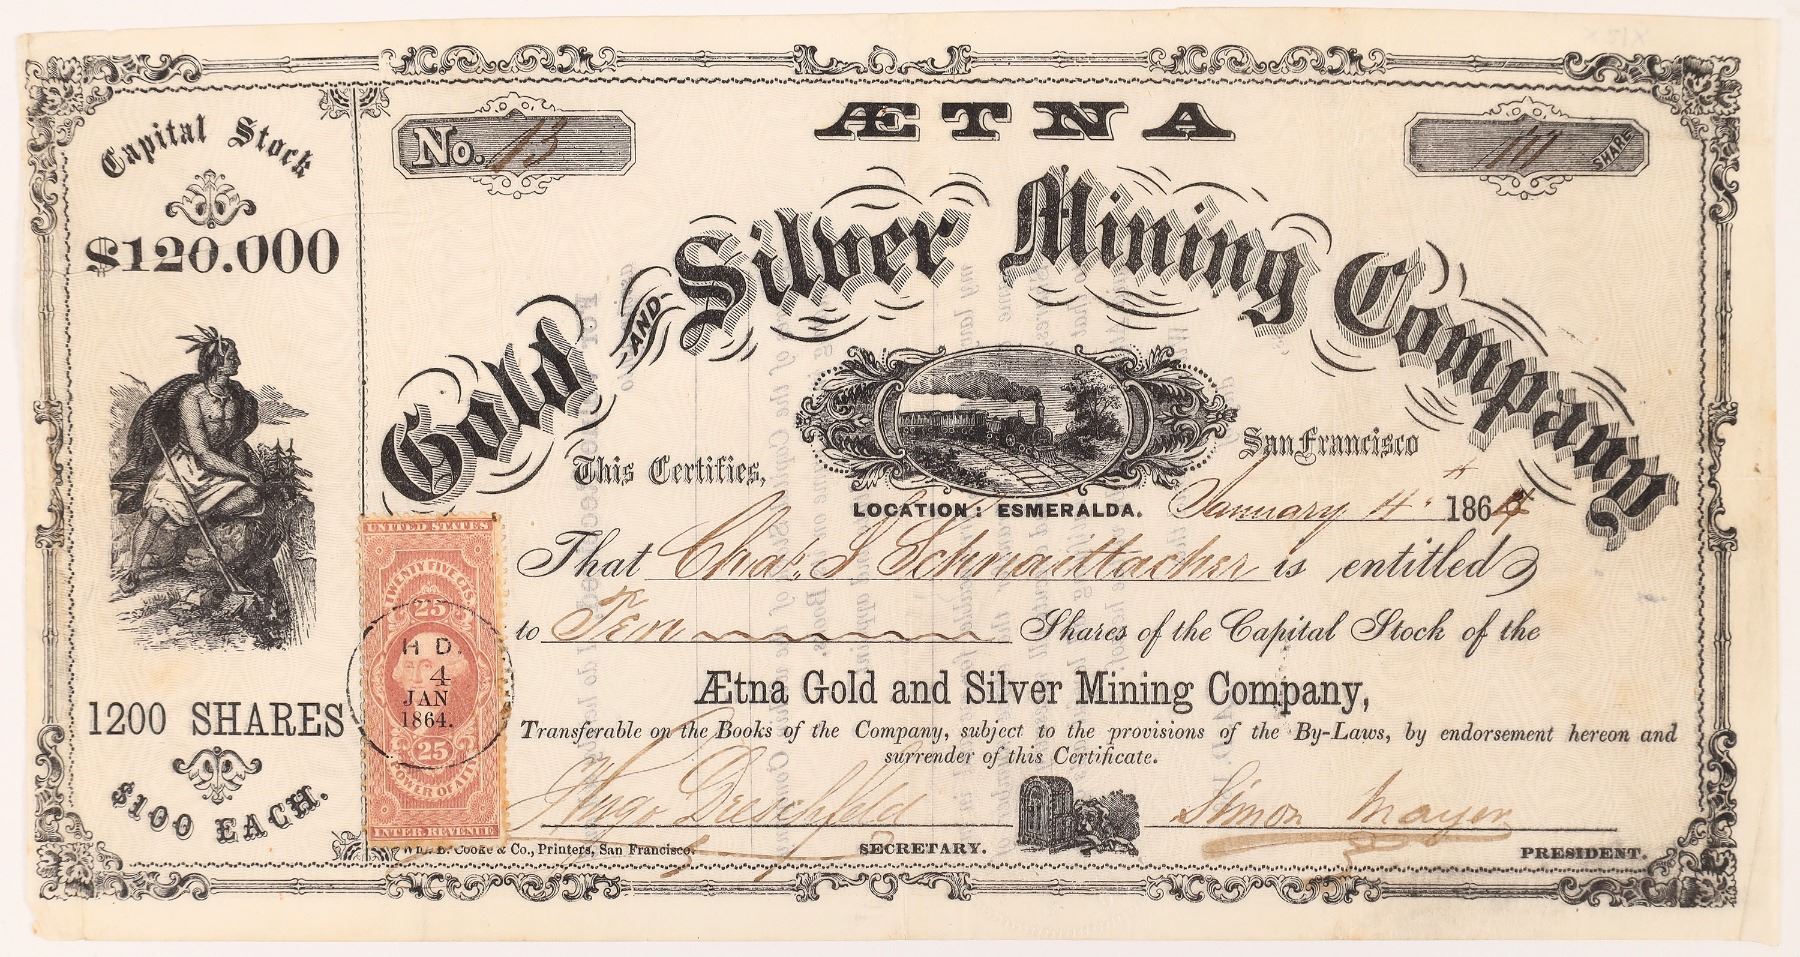 Capital Stock
$120.000
1200 SHARES
$100 EACH.
No. 13
ÆTNA
10 SHARE
Gold AND Silver Mining Company
This Certifies,
San Francisco
LOCATION: ESMERALDA.
January 4th 1864
That Chas. S Schnaittacher is entitled
to Ten Shares of the Capital Stock of the
Ætna Gold and Silver Mining Company,
Transferable on the Books of the Company, subject to the provisions of the By-Laws, by endorsement hereon and
surrender of this Certificate.
Hugo Dreschfeld
SECRETARY.
Simon Mayer
PRESIDENT.
Cooke & Co., Printers, San Francisco.
UNITED STATES
TWENTY FIVE CTS.
25
H D.
4
JAN
1864.
25
POWER OF ATT
INTER. REVENUE